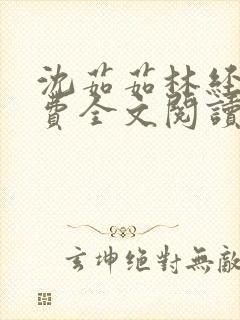 沈茹茹林经
费全文閱讀
玄坤绝對無敵